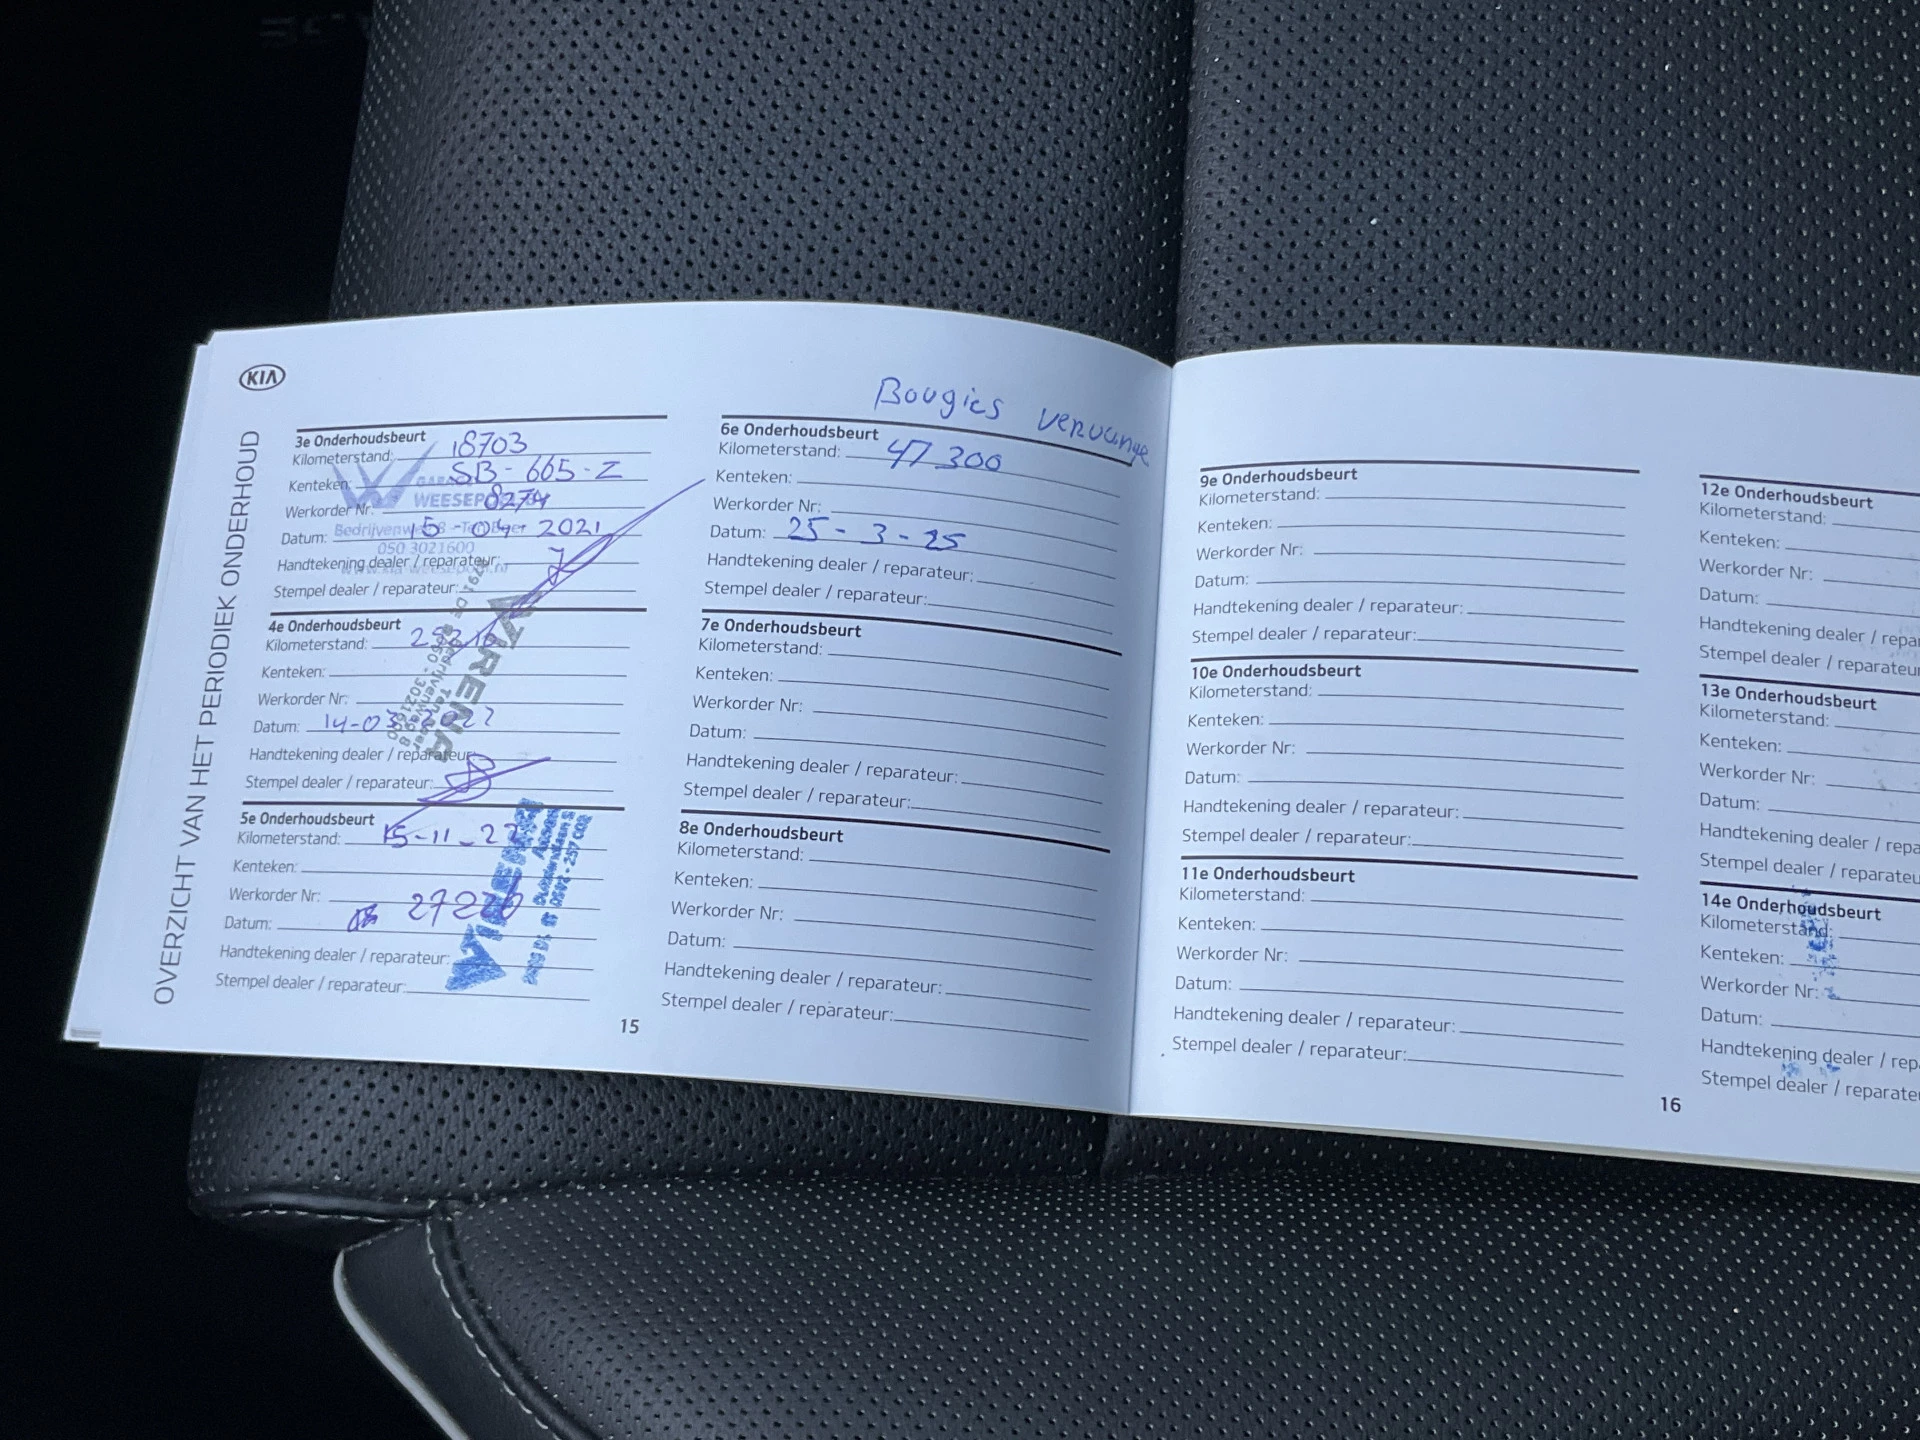 KIA
OVERZICHT VAN HET PERIODIEK ONDERHOUD
3e Onderhoudsbeurt
Kilometerstand: 18703
Kenteken: SB-665-Z
Werkorder Nr: 8274
Datum: 15-04-2021
Handtekening dealer / reparateur:
Stempel dealer / reparateur:
WEESEP
Bedrijvenweg 8
050 3021600
4e Onderhoudsbeurt
Kilometerstand:
Kenteken:
Werkorder Nr:
Datum: 14-03-2022
Handtekening dealer / reparateur:
Stempel dealer / reparateur:
VIRENA
Bedrijvenweg 8
Ten Boer
5e Onderhoudsbeurt
Kilometerstand: 15-11-22
Kenteken:
Werkorder Nr:
Datum: 27226
Handtekening dealer / reparateur:
Stempel dealer / reparateur:
VIRENA
15
Bougies vervange
6e Onderhoudsbeurt
Kilometerstand: 47300
Kenteken:
Werkorder Nr:
Datum: 25-3-25
Handtekening dealer / reparateur:
Stempel dealer / reparateur:
7e Onderhoudsbeurt
Kilometerstand:
Kenteken:
Werkorder Nr:
Datum:
Handtekening dealer / reparateur:
Stempel dealer / reparateur:
8e Onderhoudsbeurt
Kilometerstand:
Kenteken:
Werkorder Nr:
Datum:
Handtekening dealer / reparateur:
Stempel dealer / reparateur:
9e Onderhoudsbeurt
Kilometerstand:
Kenteken:
Werkorder Nr:
Datum:
Handtekening dealer / reparateur:
Stempel dealer / reparateur:
10e Onderhoudsbeurt
Kilometerstand:
Kenteken:
Werkorder Nr:
Datum:
Handtekening dealer / reparateur:
Stempel dealer / reparateur:
11e Onderhoudsbeurt
Kilometerstand:
Kenteken:
Werkorder Nr:
Datum:
Handtekening dealer / reparateur:
Stempel dealer / reparateur:
16
12e Onderhoudsbeurt
Kilometerstand:
Kenteken:
Werkorder Nr:
Datum:
Handtekening dealer / repar
Stempel dealer / reparateu
13e Onderhoudsbeurt
Kilometerstand:
Kenteken:
Werkorder Nr:
Datum:
Handtekening dealer / repa
Stempel dealer / reparateu
14e Onderhoudsbeurt
Kilometerstand:
Kenteken:
Werkorder Nr:
Datum:
Handtekening dealer / rep
Stempel dealer / reparate